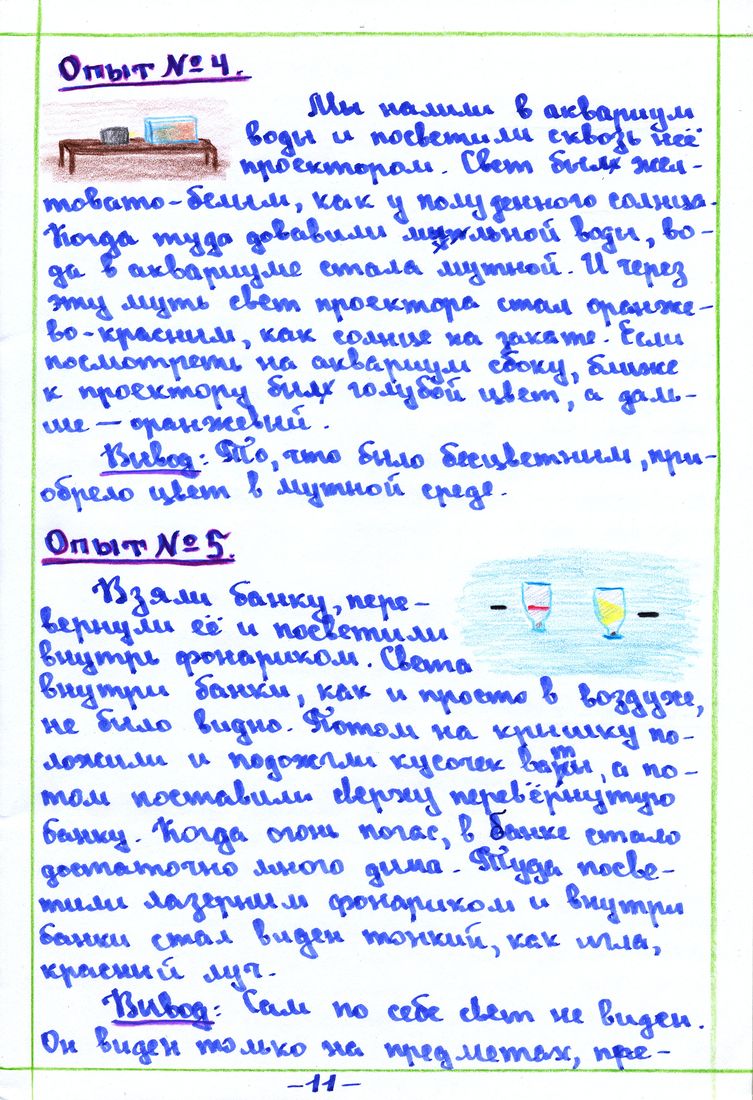 Опыт № 4.
Мы налили в аквариум
воды и посветили сквозь неё
проектором. Свет был жел-
товато-белым, как у полуденного солнца.
Когда туда добавили мыльной воды, во-
да в аквариуме стала мутной. И через
эту муть свет проектора стал оранже-
во-красным, как солнце на закате. Если
посмотреть на аквариум сбоку, ближе
к проектору был голубой цвет, а даль-
ше — оранжевый.
Вывод: То, что было бесцветным, при-
обрело цвет в мутной среде.
Опыт № 5.
Взяли банку, пере-
вернули её и посветили
внутрь фонариком. Света
внутри банки, как и просто в воздухе,
не было видно. Потом на крышку по-
ложили и подожгли кусочек ваты, а по-
том поставили сверху перевёрнутую
банку. Когда огонь погас, в банке стало
достаточно много дыма. Туда посве-
тили лазерным фонариком и внутри
банки стал виден тонкий, как игла,
красный луч.
Вывод: Сам по себе свет не виден.
Он виден только на предметах, пре-
-11-